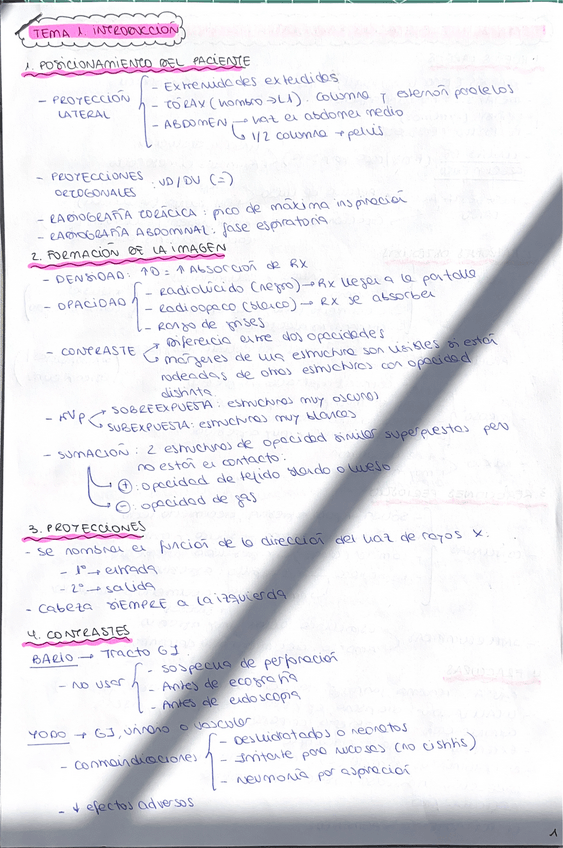 TEMA 1. INTRODUCCIÓN
1. POSICIONAMIENTO DEL PACIENTE
- PROYECCIÓN LATERAL
- Extremidades extendidas
- TÓRAX (hombro → L1). Columna y esternón paralelos
- ABDOMEN → haz en abdomen medio
↳ 1/2 columna → pelvis
- PROYECCIONES ORTOGONALES : VD/DV (=)
- RADIOGRAFÍA TORÁCICA : pico de máxima inspiración
- RADIOGRAFÍA ABDOMINAL : fase espiratoria
2. FORMACIÓN DE LA IMAGEN
- DENSIDAD: ↑D = ↑ Absorción de Rx
- OPACIDAD
- Radiolúcido (negro) → Rx llegan a la pantalla
- Radiopaco (blanco) → Rx se absorben
- Rango de grises
- CONTRASTE
→ Diferencia entre dos opacidades
↳ márgenes de una estructura son visibles si están
rodeadas de otras estructuras con opacidad
distinta
- KVp
→ SOBREEXPUESTA: estructuras muy oscuras
→ SUBEXPUESTA: estructuras muy blancas
- SUMACIÓN: 2 estructuras de opacidad similar superpuestas pero
no están en contacto:
(+): opacidad de tejido blando o hueso
(-): opacidad de gas
3. PROYECCIONES
- Se nombran en función de la dirección del haz de rayos X.
- 1º → entrada
- 2º → salida
- Cabeza SIEMPRE a la izquierda
4. CONTRASTES
BARIO → Tracto GI.
- no usar
- Sospecha de perforación
- Antes de ecografía
- Antes de endoscopia
YODO → GI, urinario o vascular
- contraindicaciones
- Deshidratados o neonatos
- Irritante para mucosas (no cistitis)
- Neumonía por aspiración
- ↓ efectos adversos
1